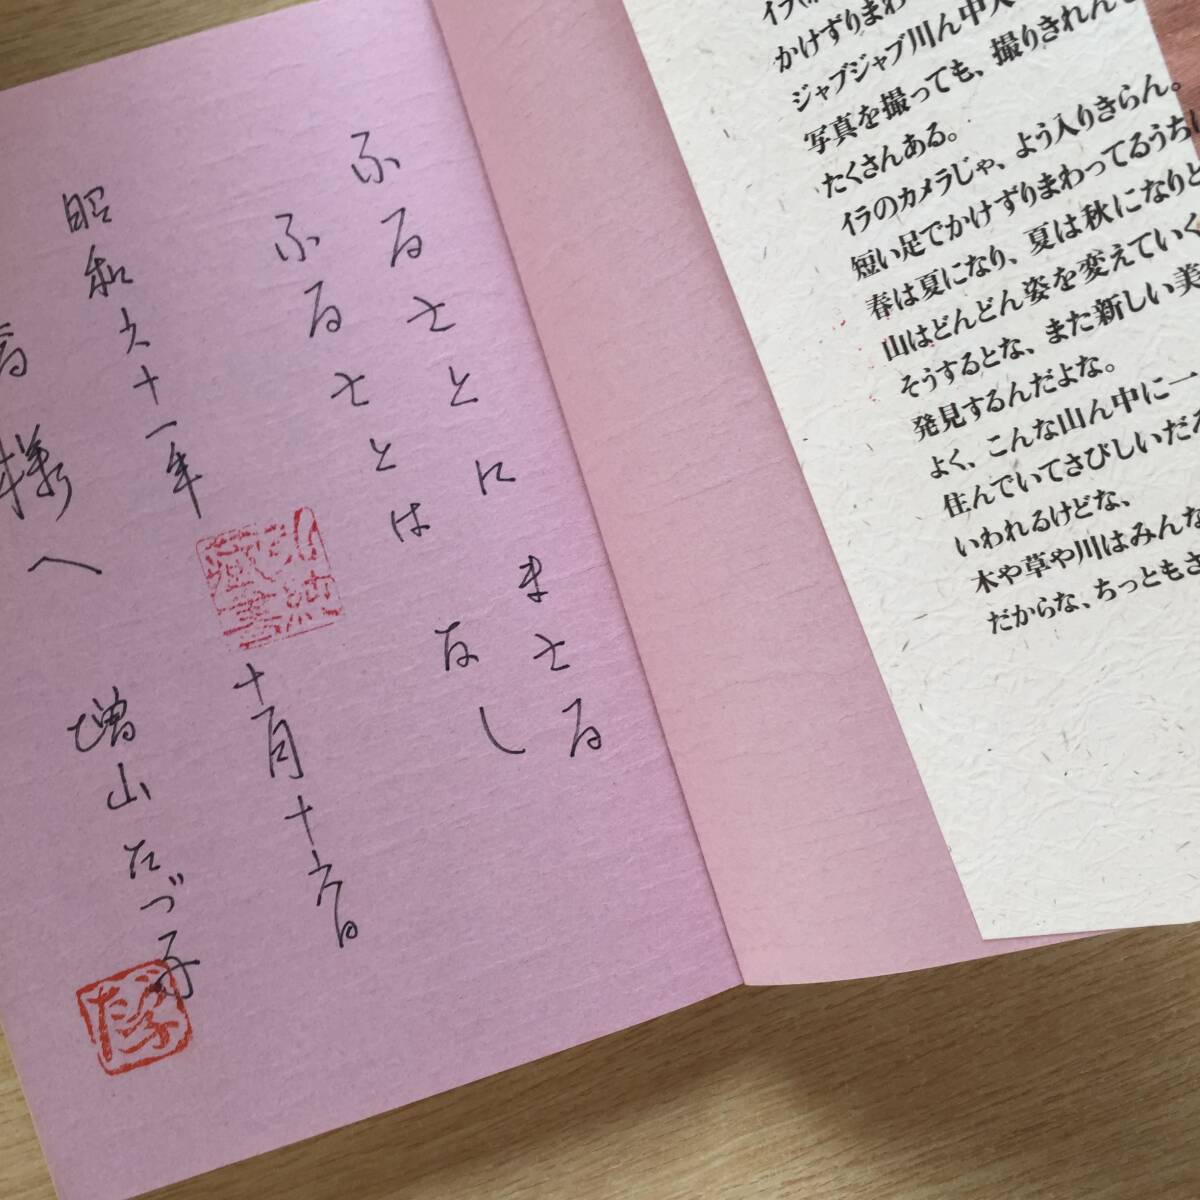 ふるさとにまさる
ふるさとはなし
昭和六十一年 十月十六日
様へ 増山たづ子
たづ子
蔵書
イラ
かけずりまわ
ジャブジャブ川ん中
写真を撮っても、撮りきれん
たくさんある。
イラのカメラじゃ、よう入りきらん。
短い足でかけずりまわってるうち
春は夏になり、夏は秋になりと
山はどんどん姿を変えていく
そうするとな、また新しい美
発見するんだよな。
よく、こんな山ん中に一
住んでいてさびしいだ
いわれるけどな、
木や草や川はみんな
だからな、ちっともさ